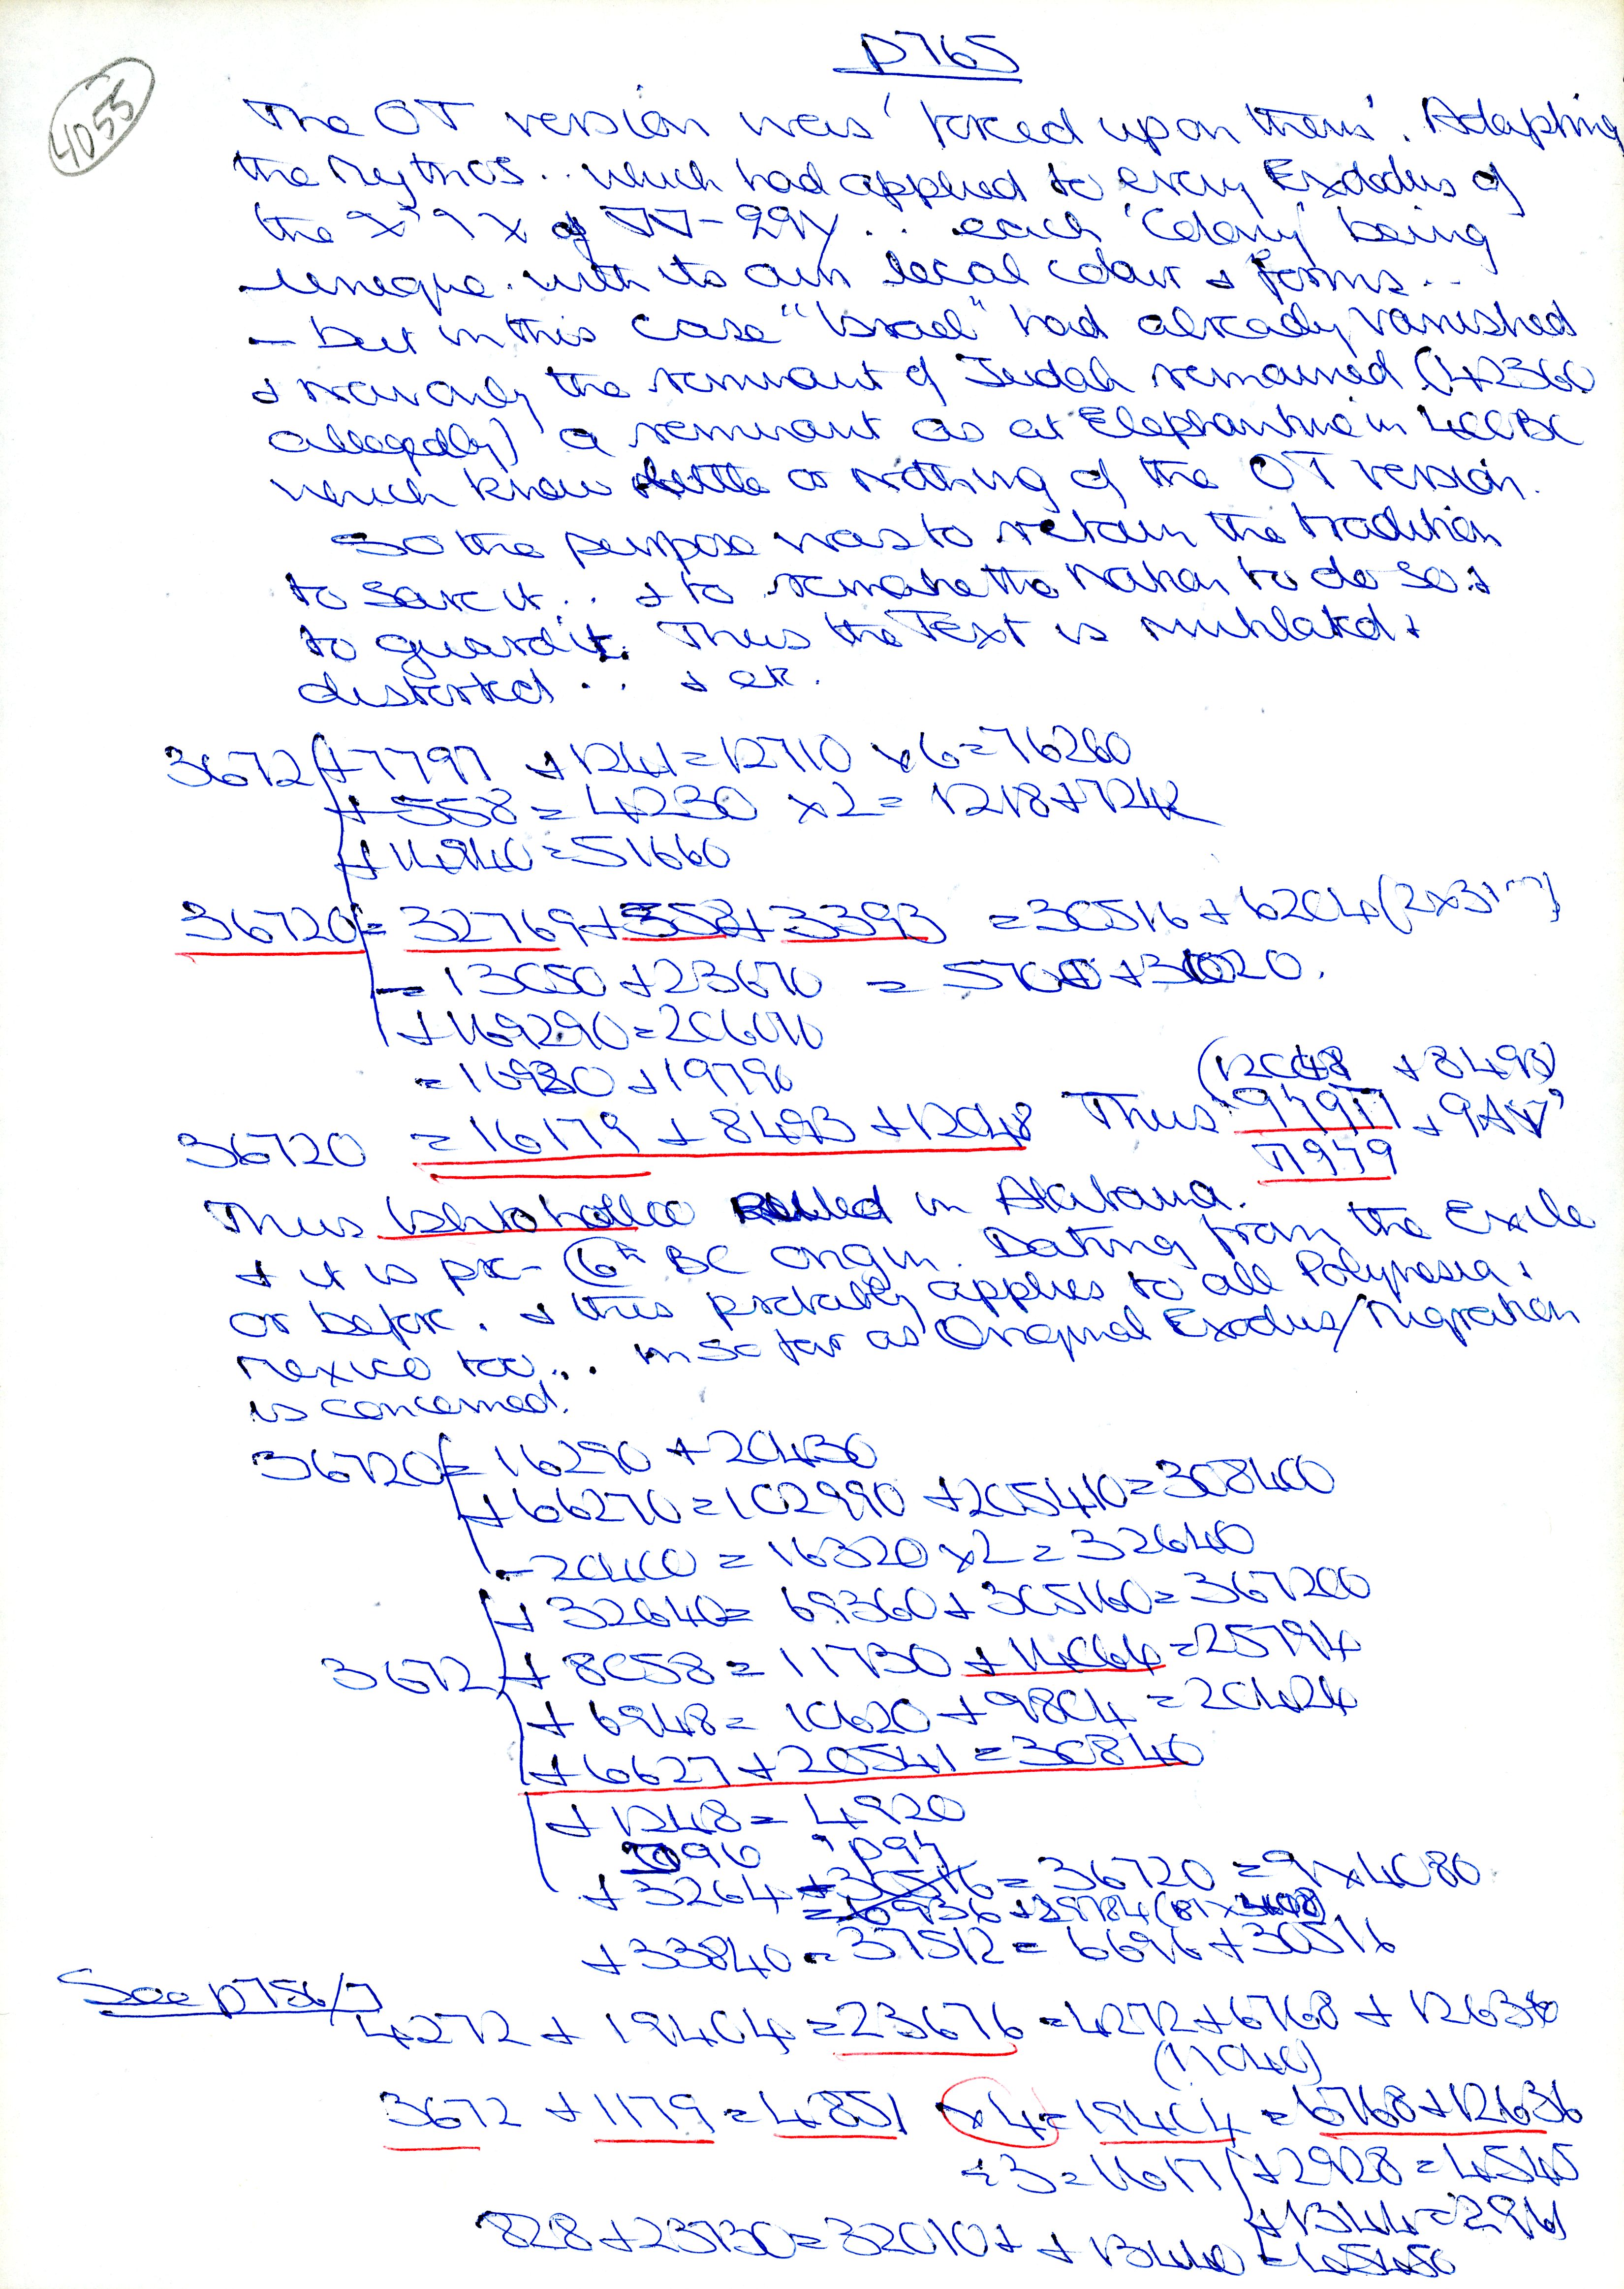 p765
4055
The OT version was 'forced upon them'. Adapting
the Mythos .. which had applied to every Exodus of
the of .. each 'Colony' being
unique. with its own local colour & forms ..
– but in this case "Israel" had already vanished
& now only the remnant of Judah remained (42360
allegedly) a remnant as at Elephantine in 400BC
which knew little or nothing of the OT version.
So the purpose was to retain the tradition
to save it .. & to remake the Nation to do so &
to guard it. Thus the Text is mutilated &
distorted .. & etc.
3672 + 7797 + 1241 = 12710 x 6 = 76260
+ 558 = 4230 x 2 =
+ 14940 = 51660
36720 = 32769 + 558 + 3393 = 30516 + 6204 (2 x 3
= 13050 + 23670 = 5700 + 31020.
+ 169290 = 206010
= 16930 + 19790
(12048 + 8493)
36720 = 16179 + 8493 + 12048 Thus
Thus Ishtohollo Rolled in Alabama.
& it is pre- 6th BC origin. Dating from the Exile
or before. & this probably applies to all Polynesia &
Mexico too ... in so far as Original Exodus/Migration
is concerned.
36720 = 16290 + 20430
+ 66270 = 102990 + 205410 = 308400
- 20400 = 16320 x 2 = 32640
+ 32640 = 69360 + 305160 = 367200
3672 + 8058 = 11730 + 14064 = 25794
+ 6948 = 10620 + 9804 = 20424
+ 6627 + 20541 = 30840
+ 1248 = 4920
+ 3264 + 30516 = 36720 = 9 x 4080
= 6936 + 29784
+ 33840 = 37512 = 6696 + 30516
See p756/7
4272 + 19404 = 23676 = 4272 + 6768 + 12636
(11040)
3672 + 1179 = 4851 x 4 = 19404 = 6768 + 12636
÷ 3 = 1617 + 2928 = 4545
+ 1344 = 2961
828 + 23730 = 32010 + + 13440 = 45450